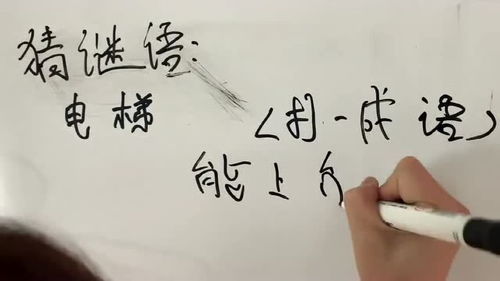 猜谜语:
电梯 (打一成语)
能上